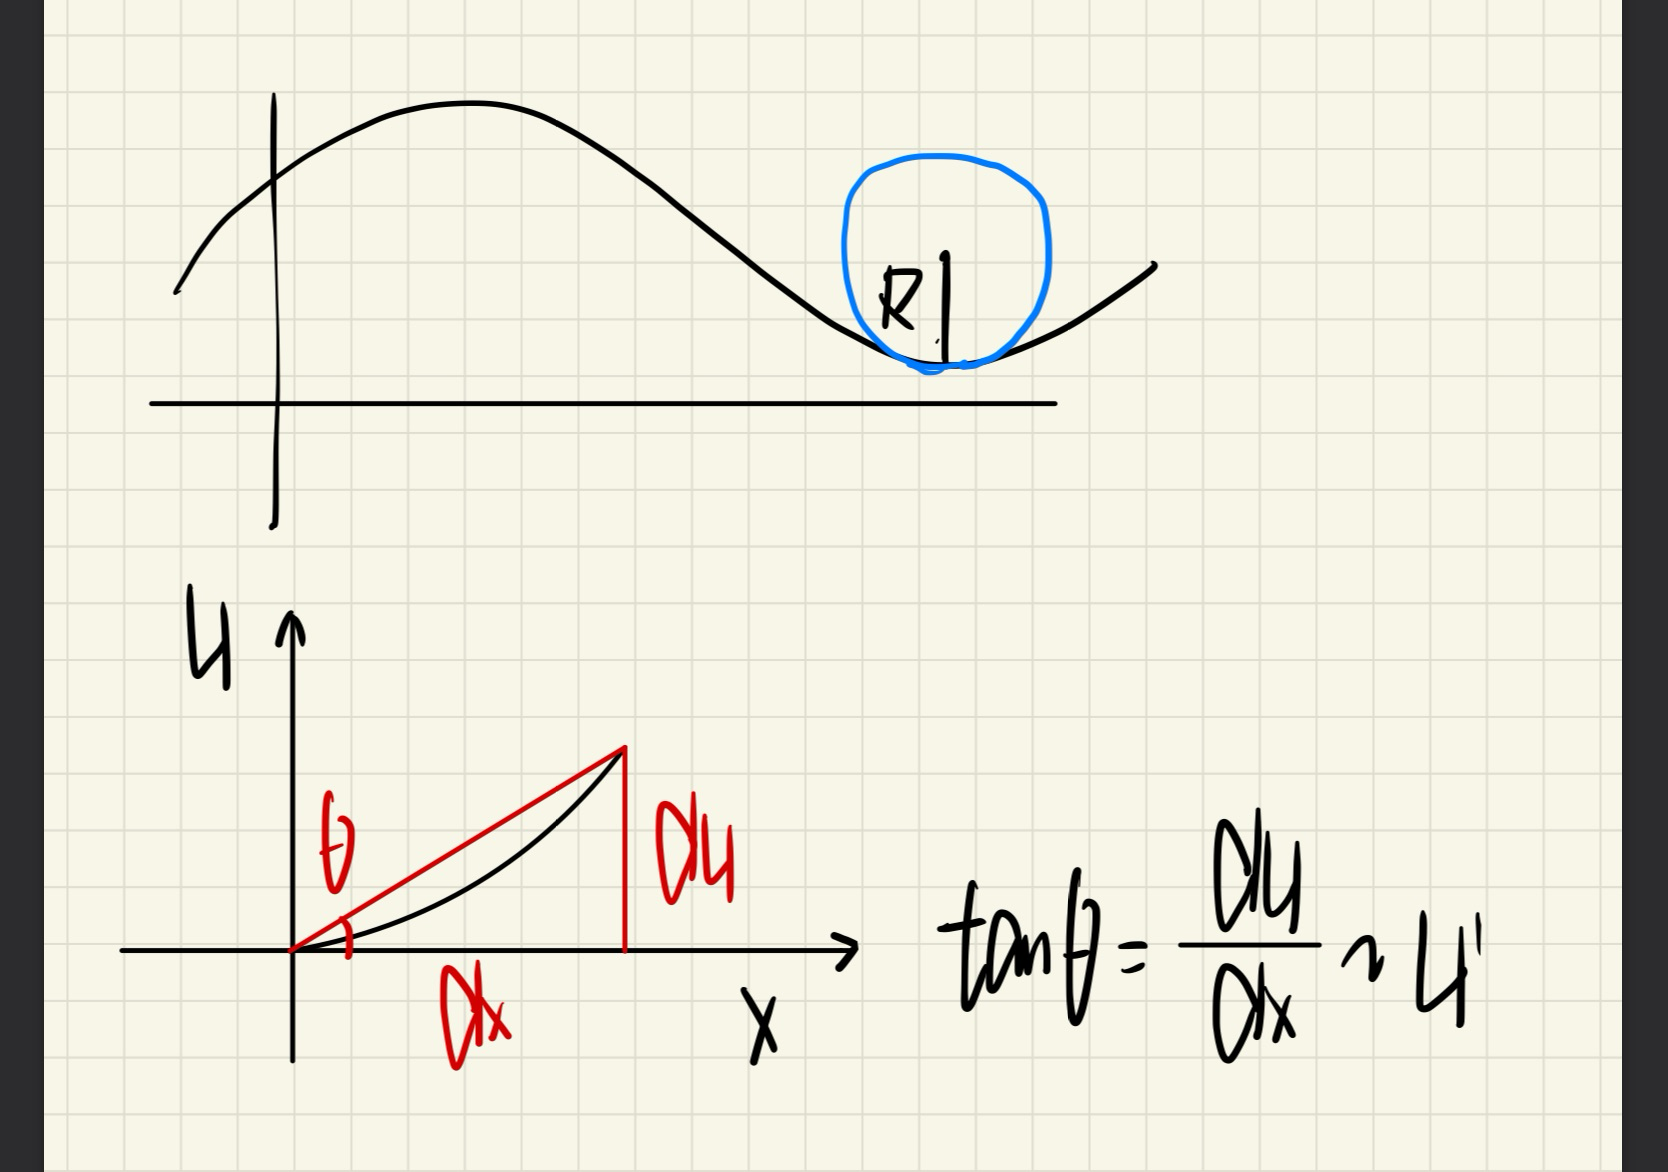 R
y
θ
dy
dx
x
tanθ = dy/dx ~ y'